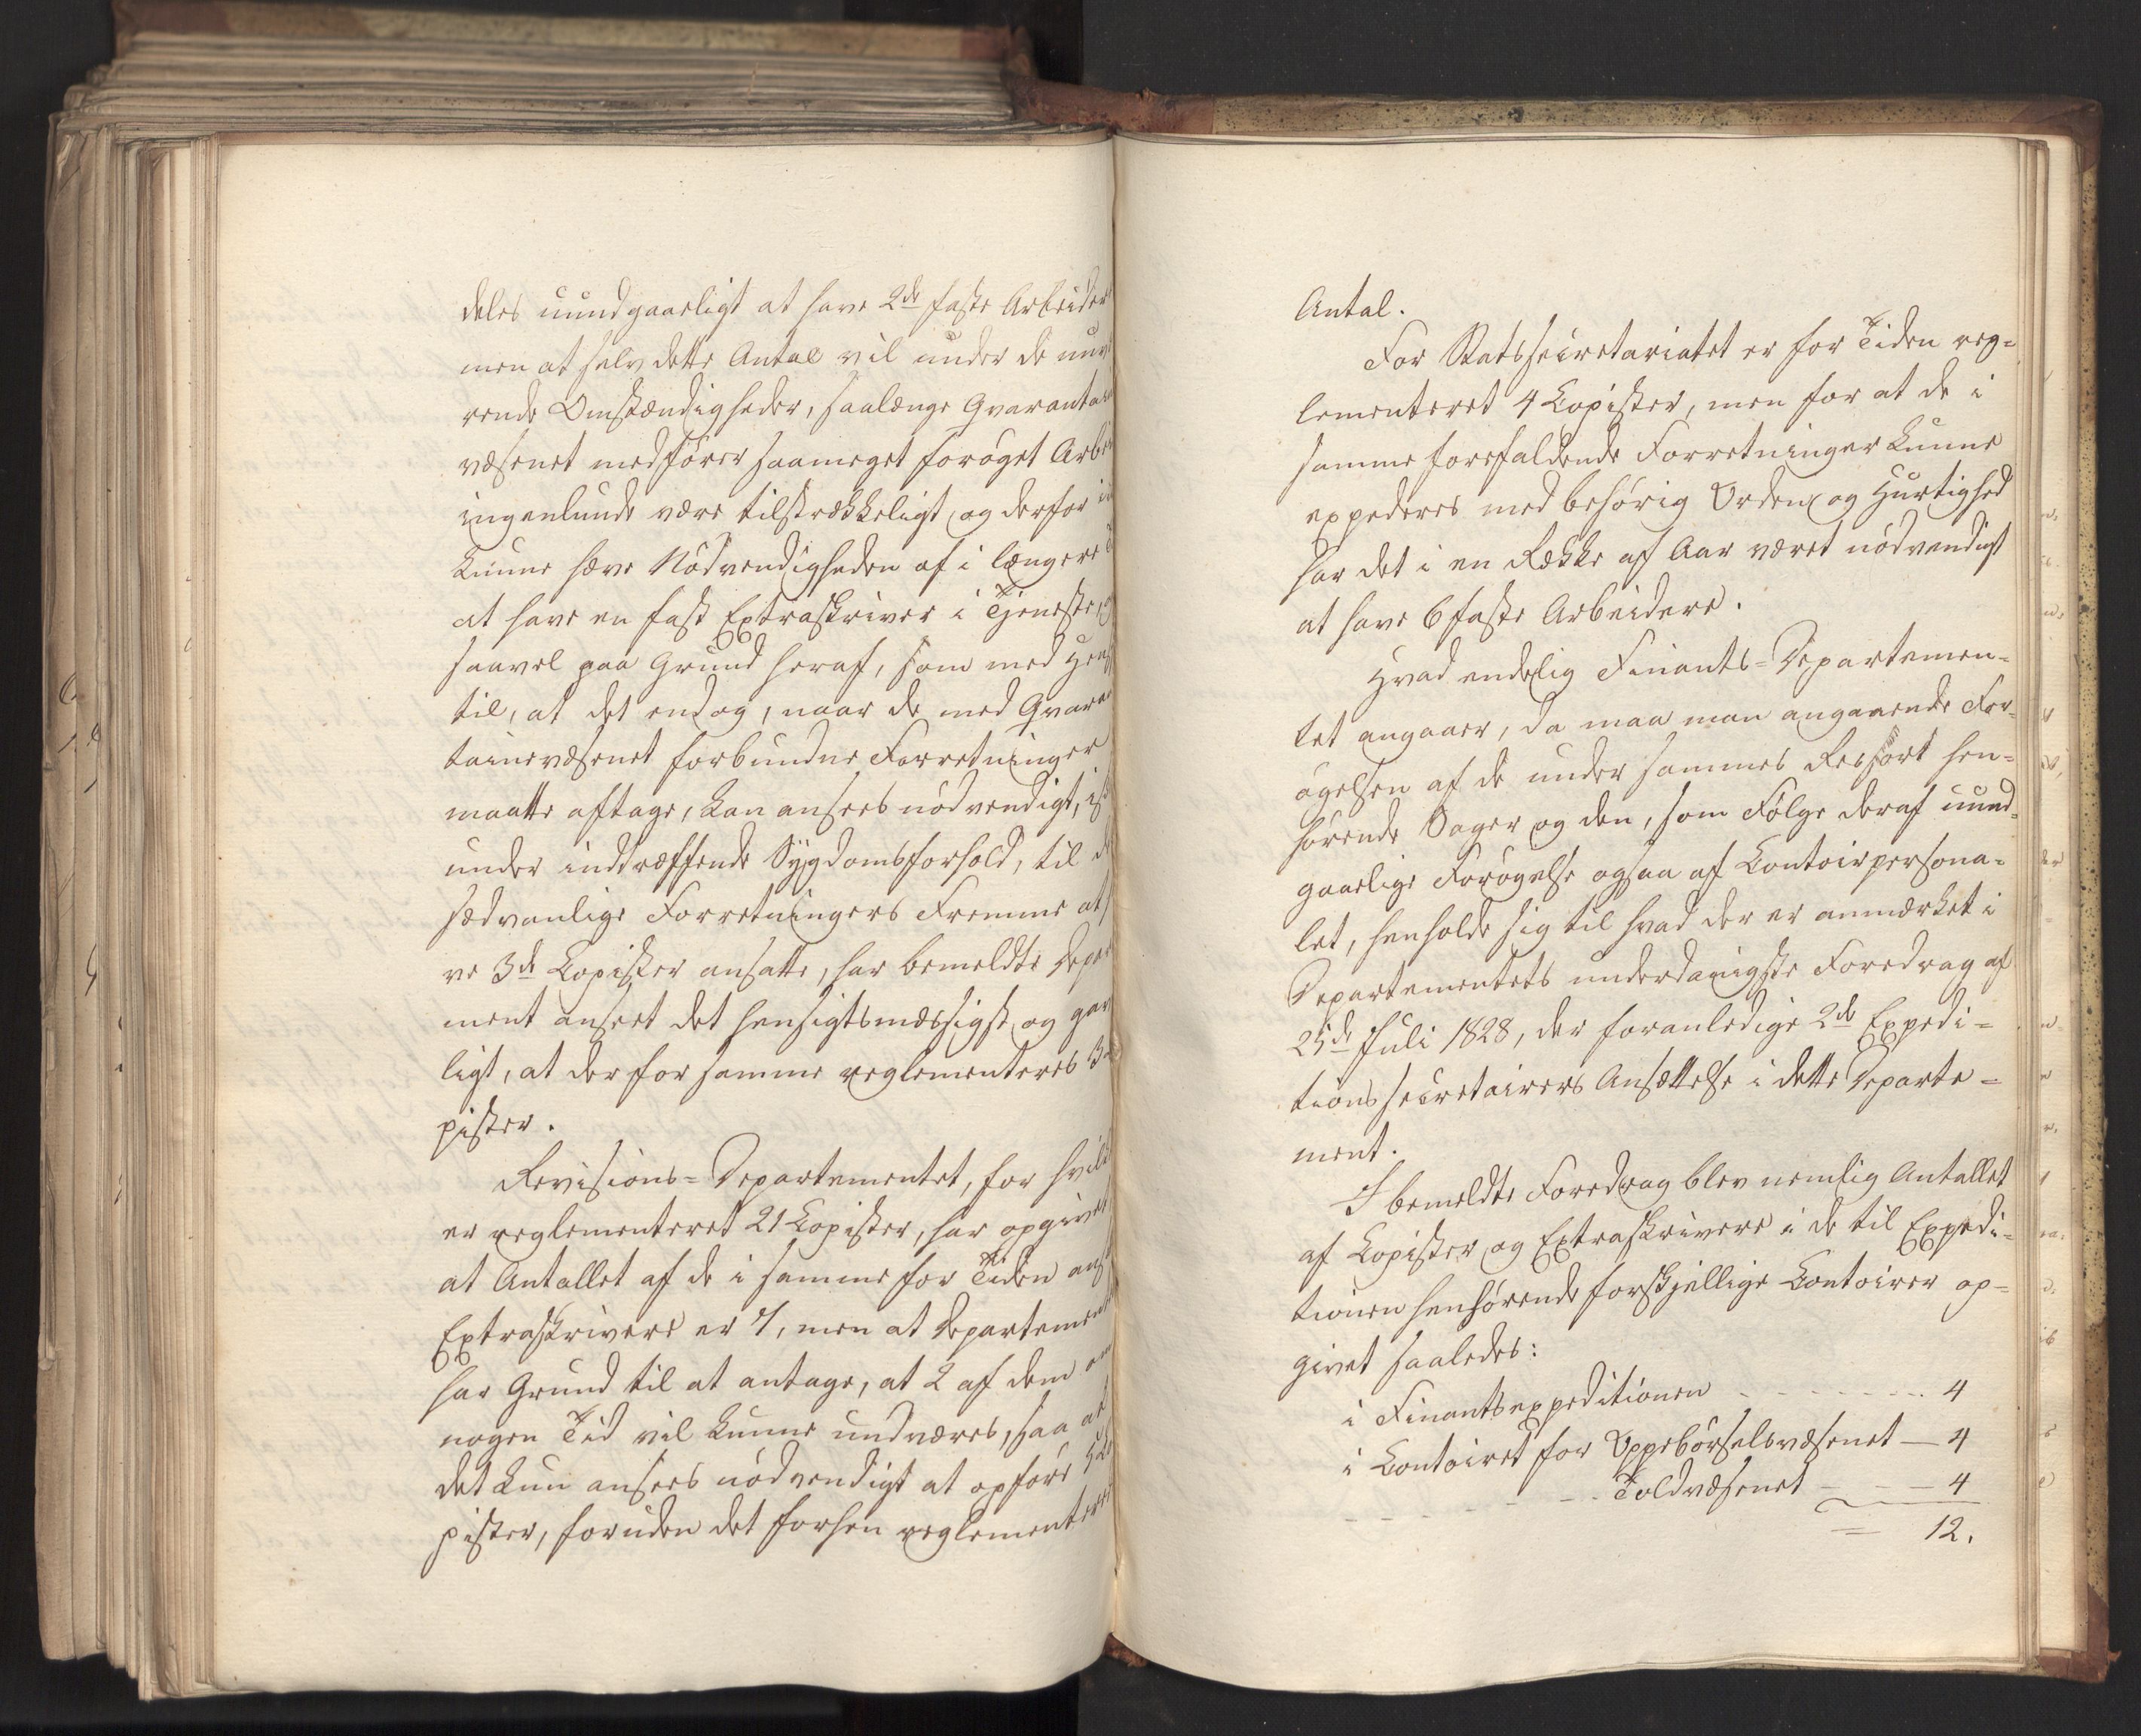 deles uundgaaeligt at have 2de faste Arbeider
men at selv dette Antal vil under de nuvæ
rende Omstændigheder, saalænge Qvarantai
væsenet medfører saameget forøget Arbei
ingenlunde være tilstrækkeligt, og derfor i
kunne hæve Nødvendigheden af i længere T
at have en fast Extraskriver i Tjeneste, og
saavel paa Grund heraf, som med Hens
til, at det endog, naar de med Qvaran
tainevæsenet forbundne Forretninger
maatte aftage, kan ansees nødvendigt, is
under indtræffende Sygdomsforhold, til de
sædvanlige Forretningers Fremme at
ve 3de Copister ansatte, har bemeldte Depar
ment anseet det hensigtsmæssigst og gav
ligt, at der for samme reglementeres 3
pister.
Revisions-Departementet, for hvilk
er reglementeret 21 Copister, har opgivet
at Antallet af de i samme for Tiden ans
Extraskrivere er 7, men at Departement
har Grund til at antage, at 2 af dem om
nogen Tid vil kunne undværes, saa at
det kun ansees nødvendigt at opføre 5
pister, foruden det forhen reglementere
Antal.
For Statssecretariatet er for Tiden reg-
lementeret 4 Copister, men for at de i
samme forefaldende Forretninger kunne
expederes med behørig Orden og Hurtighed
har det i en Række af Aar været nødvendigt
at have 6 faste Arbeidere.
Hvad endelig Finants-Departemen-
tet angaaer, da maa man angaaende For-
øgelsen af de under sammes Ressort hen-
hørende Sager og den, som Følge deraf uund-
gaaelige Forøgelse ogsaa af Contoirpersona-
let, henholde sig til hvad der er anmærket i
Departementets underdanigste Foredrag af
25de Juli 1828, der foranledige 2de Expedi-
tionssecretairers Ansættelse i dette Departe-
ment.
I bemeldte Foredrag blev nemlig Antallet
af Copister og Extraskrivere i de til Expedi-
tionen henhørende forskjellige Contoirer op-
givet saaledes:
i Finantsexpeditionen - - - - - - - - 4
i Contoiret for Oppebørselsvæsenet — 4
- - - - - - Toldvæsenet - - — 4
= 12.